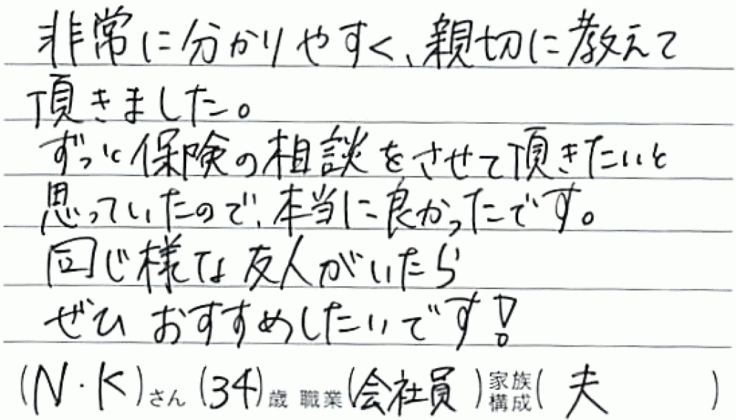 非常に分かりやすく、親切に教えて
頂きました。
ずっと保険の相談をさせて頂きたいと
思っていたので、本当に良かったです。
同じ様な友人がいたら
ぜひおすすめしたいです!
(N・K)さん (34)歳 職業(会社員)家族構成(夫)